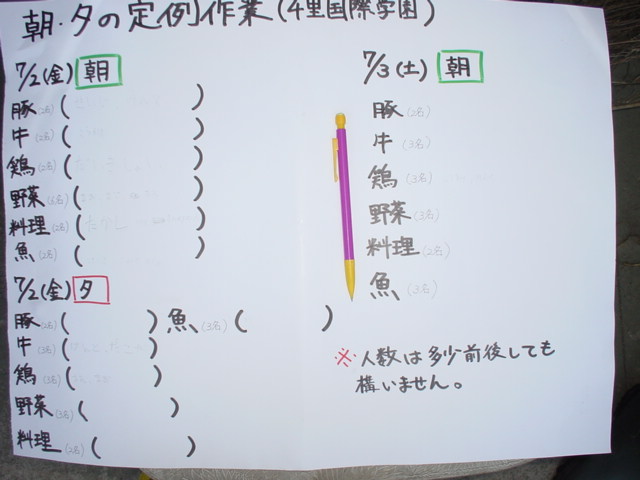 朝・夕の定例作業(千里国際学園)
7/2(金) 朝
豚(2名)( )
牛(2名)( )
鶏(2名)( )
野菜(6名)( )
料理(2名)( )
魚(2名)( )
7/2(金) 夕
豚(2名)( ) 魚(3名)( )
牛(3名)( )
鶏(3名)( )
野菜(3名)( )
料理(2名)( )
7/3(土) 朝
豚(2名)
牛(3名)
鶏(3名)
野菜(3名)
料理(2名)
魚(3名)
※人数は多少前後しても
構いません。